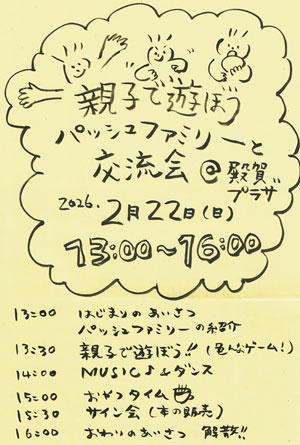 親子で遊ぼう
パッシュファミリーと
交流会@殿賀
プラザ
2026.2月22日(日)
13:00~16:00
13:00 はじまりのあいさつ
パッシュファミリーの紹介
13:30 親子で遊ぼう!!(色んなゲーム!)
14:00 MUSIC♪&ダンス
15:00 おやつタイム
15:30 サイン会(本の販売)
16:00 おわりのあいさつ 解散!!